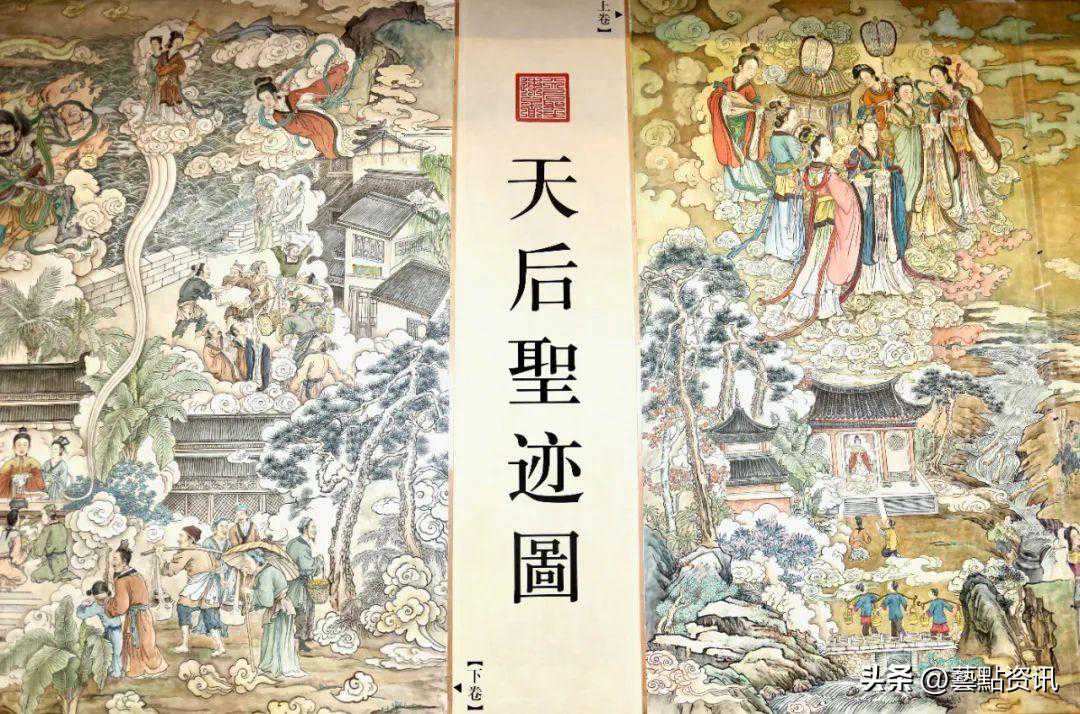 上卷】
天后聖迹圖
【下卷】
头条 @藝點资讯